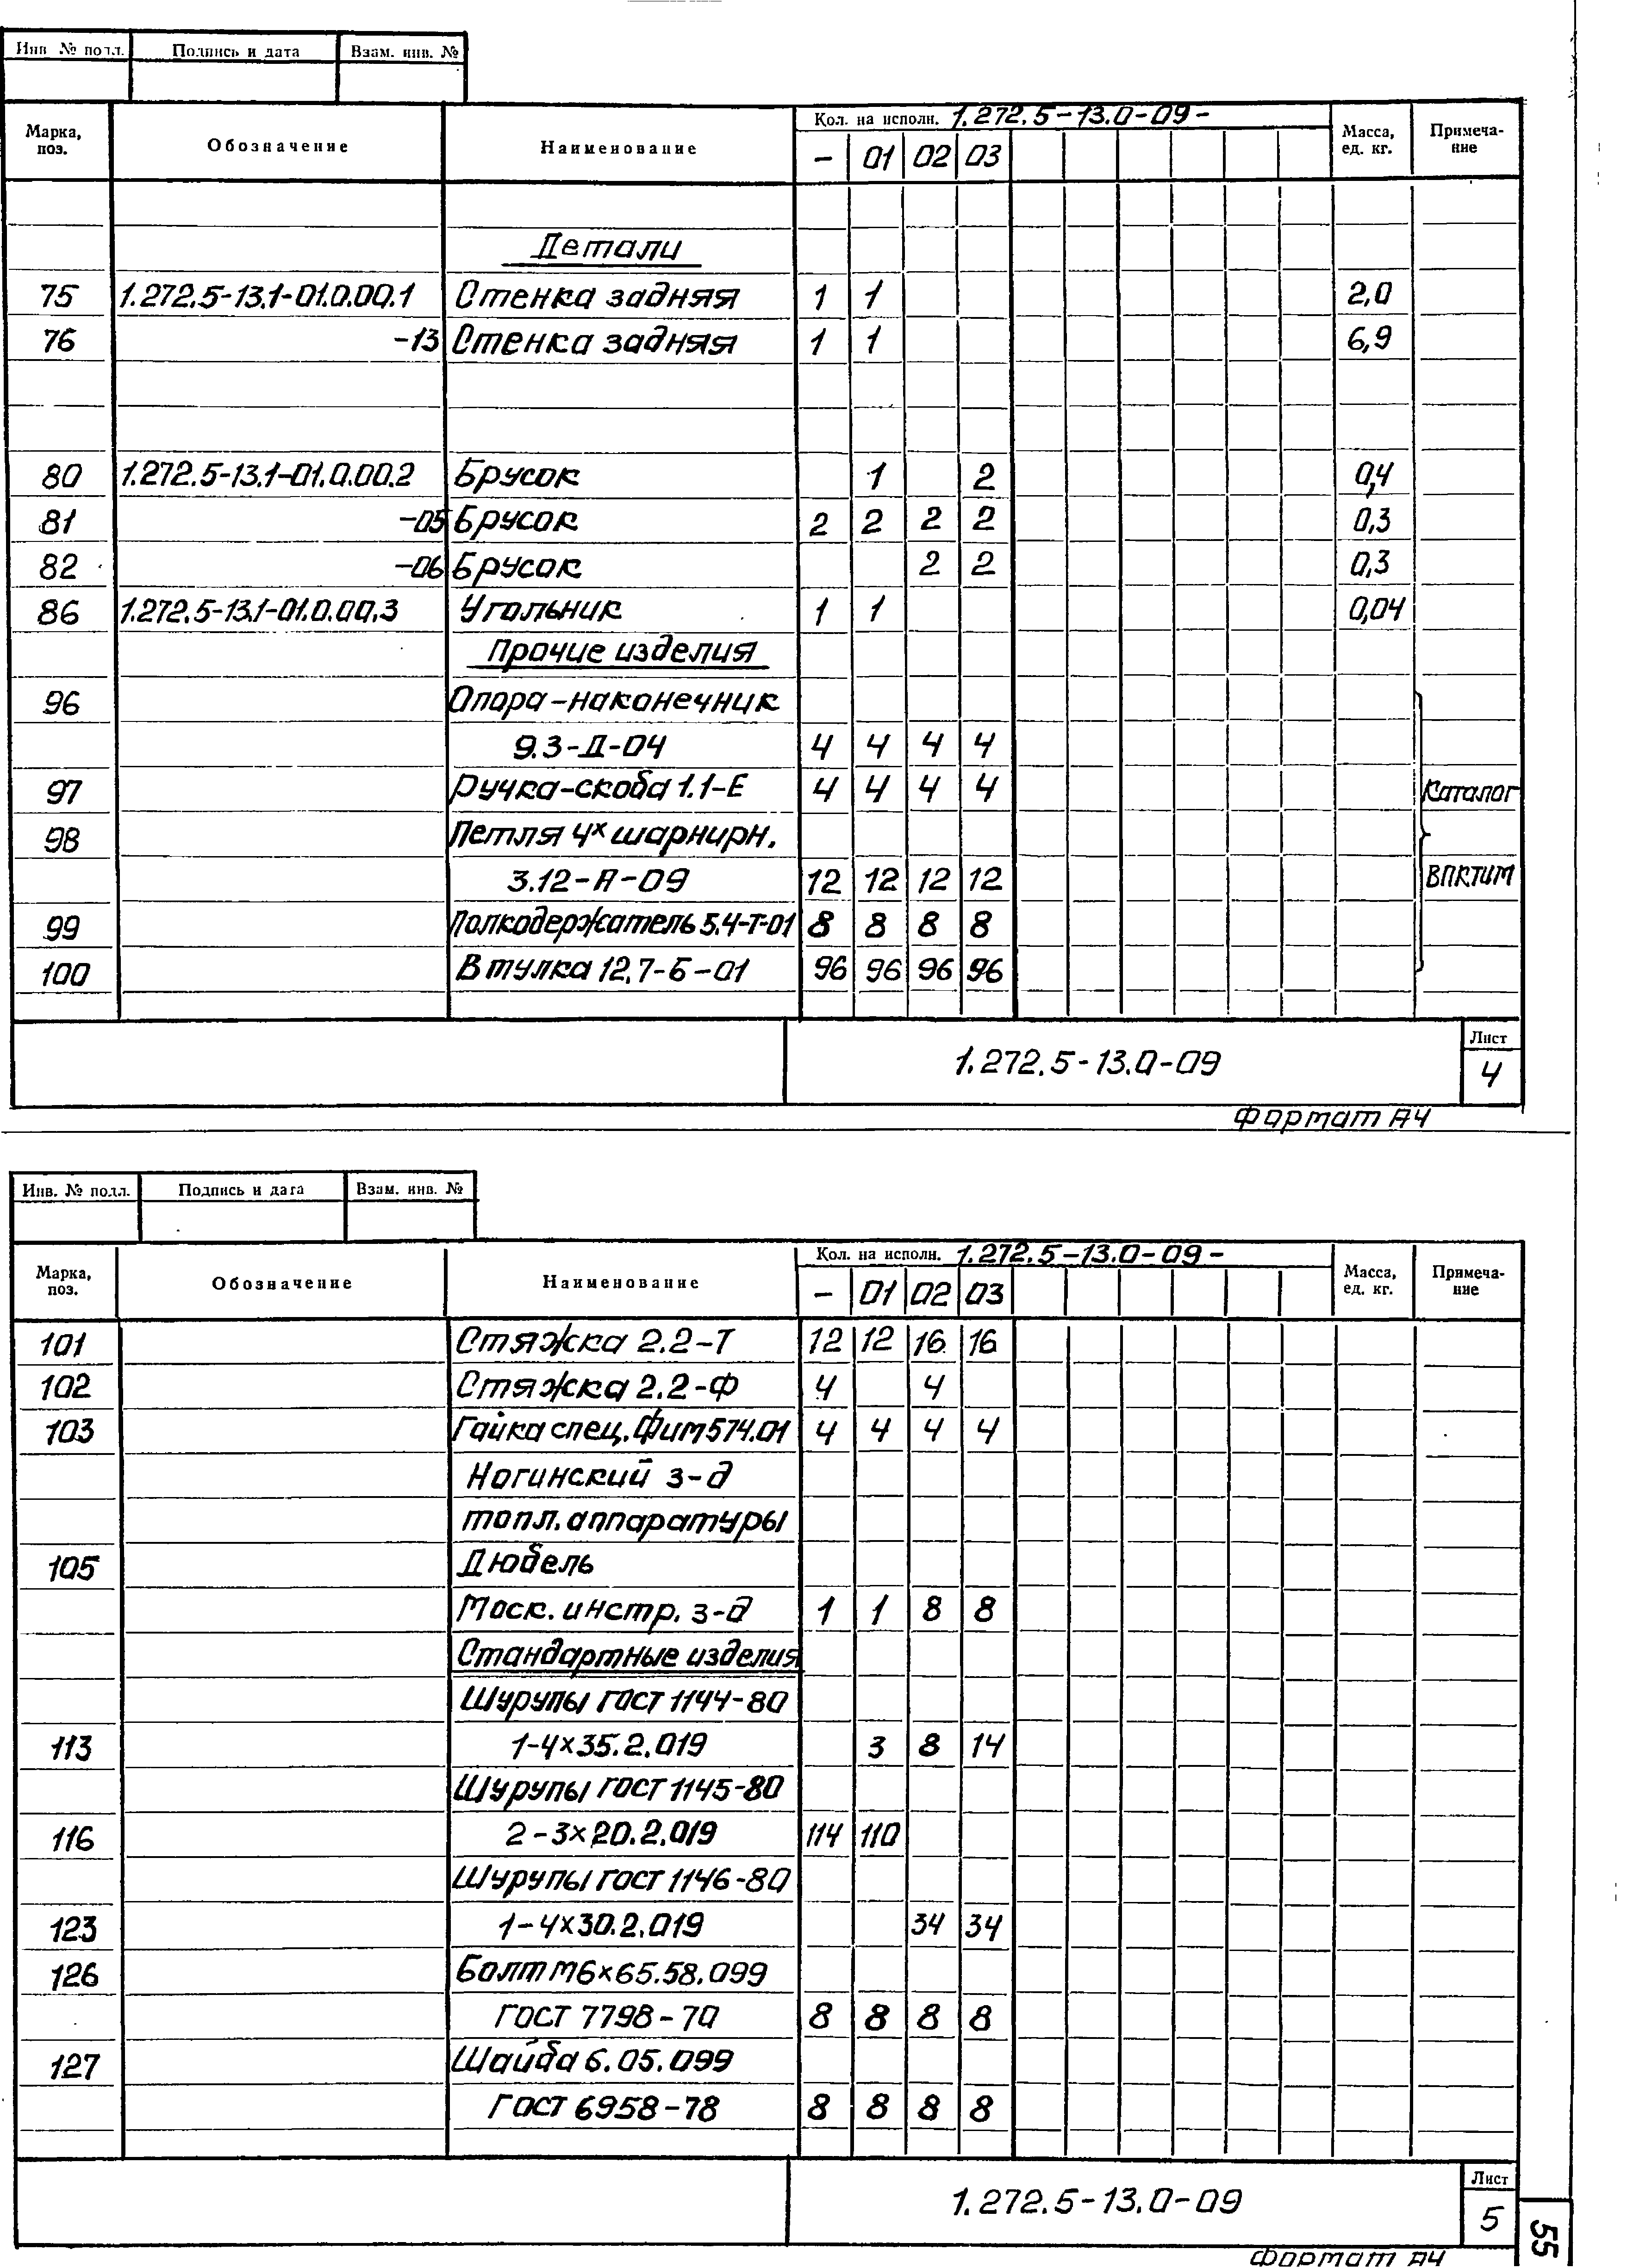 Инв № подл. Подпись и дата Взам. инв. №
Марка, поз. Обозначение Наименование Кол. на исполн. 1.272.5-13.0-09- Масса, ед. кг. Примеча-ние
- 01 02 03
Детали
75 1.272.5-13.1-01.0.00.1 Стенка задняя 1 1 2,0
76 -13 Стенка задняя 1 1 6,9
80 1.272.5-13.1-01.0.00.2 Брусок 1 2 0,4
81 -05 Брусок 2 2 2 2 0,3
82 -06 Брусок 2 2 0,3
86 1.272.5-13.1-01.0.00.3 Угольник 1 1 0,04
Прочие изделия
96 Опора-наконечник
9.3-Д-04 4 4 4 4
97 Ручка-скоба 1.1-Е 4 4 4 4 Каталог
98 Петля 4х шарнирн.
3.12-А-09 12 12 12 12 ВПКТИМ
99 Полкодержатель 5.4-Т-01 8 8 8 8
100 Втулка 12.7-Б-01 96 96 96 96
1.272.5-13.0-09 Лист 4
Формат А4
Инв. № подл. Подпись и дата Взам. инв. №
Марка, поз. Обозначение Наименование Кол. на исполн. 1.272.5-13.0-09- Масса, ед. кг. Примеча-ние
- 01 02 03
101 Стяжка 2.2-Т 12 12 16 16
102 Стяжка 2.2-Ф 4 4
103 Гайка спец. Фит 574.01 4 4 4 4
Ногинский з-д
топл. аппаратуры
105 Дюбель
Моск. инстр. з-д 1 1 8 8
Стандартные изделия
Шурупы ГОСТ 1144-80
113 1-4×35.2.019 3 8 14
Шурупы ГОСТ 1145-80
116 2-3×20.2.019 114 110
Шурупы ГОСТ 1146-80
123 1-4×30.2.019 34 34
126 Болт М6×65.58.099
ГОСТ 7798-70 8 8 8 8
127 Шайба 6.05.099
ГОСТ 6958-78 8 8 8 8
1.272.5-13.0-09 Лист 5
Формат А4
55